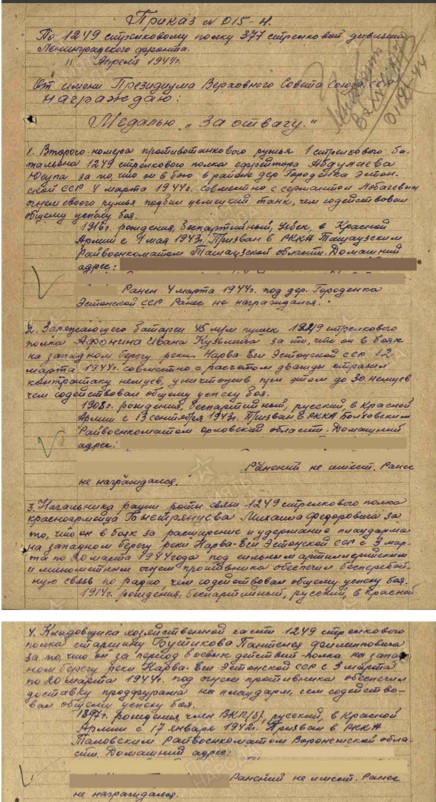 Приказ № 015-Н.
По 1249 стрелковому полку 377 стрелковой дивизии
Ленинградского фронта.
11 Апреля 1944г.
От имени Президиума Верховного Совета Союза ССР
награждаю:
Медалью „За отвагу."
1. Второго номера противотанкового ружья 1 стрелкового ба-
тальона 1249 стрелкового полка ефрейтора Абдулаева
Юсупа за то, что он в бою в районе дер. Городенка Эстон-
ской ССР 4 марта 1944г. совместно с сержантом
своего ружья подбил немецкий танк, чем содействовал
общему успеху боя.
1916г. рождения, беспартийный, узбек, в Красной
Армии с 9 мая 1943г. Призван в РККА Ташаузским
Райвоенкоматом Ташаузской области. Домашний
адрес:
Ранен 4 марта 1944г. под дер. Городенка
Эстонской ССР Ранее не награждался.
2. Заряжающего батареи 45 м/м пушек 1249 стрелкового
полка Афонина Ивана Кузьмича за то, что он в боях
на западном берегу реки Нарва-Беи Эстонской ССР 12
марта 1944г. совместно с расчетом дважды отразил
контратаку немцев, уничтожив при этом до 30 немцев
чем содействовал общему успеху боя.
1908г. рождения, беспартийный, русский, в Красной
Армии с 13 сентября 1943г. Призван в РККА Болховским
Райвоенкоматом Орловской области. Домашний
адрес:
Ранений не имеет. Ранее
не награждался.
3. Начальника рации роты связи 1249 стрелкового полка
красноармейца Быстранцева Михаила Федоровича за
то, что он в боях за расширение и удержание плацдарма
на западном берегу реки Нарва-Беи Эстонской ССР с 9 мар-
та по 20 марта 1944 года под сильным артиллерийским
и минометным огнем противника обеспечил бесперебой-
ную связь по радио, чем содействовал общему успеху боя.
1914г. рождения, беспартийный, русский, в Красной
4. Кладовщика хозяйственной части 1249 стрелкового
полка старшину
за то, что он за период боевых действий полка на запад-
ном берегу реки Нарва-Беи Эстонской ССР с 3 марта
по 20 марта 1944г. под огнем противника обеспечил
доставку продфуража на плацдарм, чем содейство-
вал общему успеху боя.
1897г. рождения член ВКП(б), русский, в Красной
Армии с 17 января 1942г. Призван в РККА
Таловским Райвоенкоматом Воронежской обла-
сти. Домашний адрес:
Ранений не имеет. Ранее
не награждался.